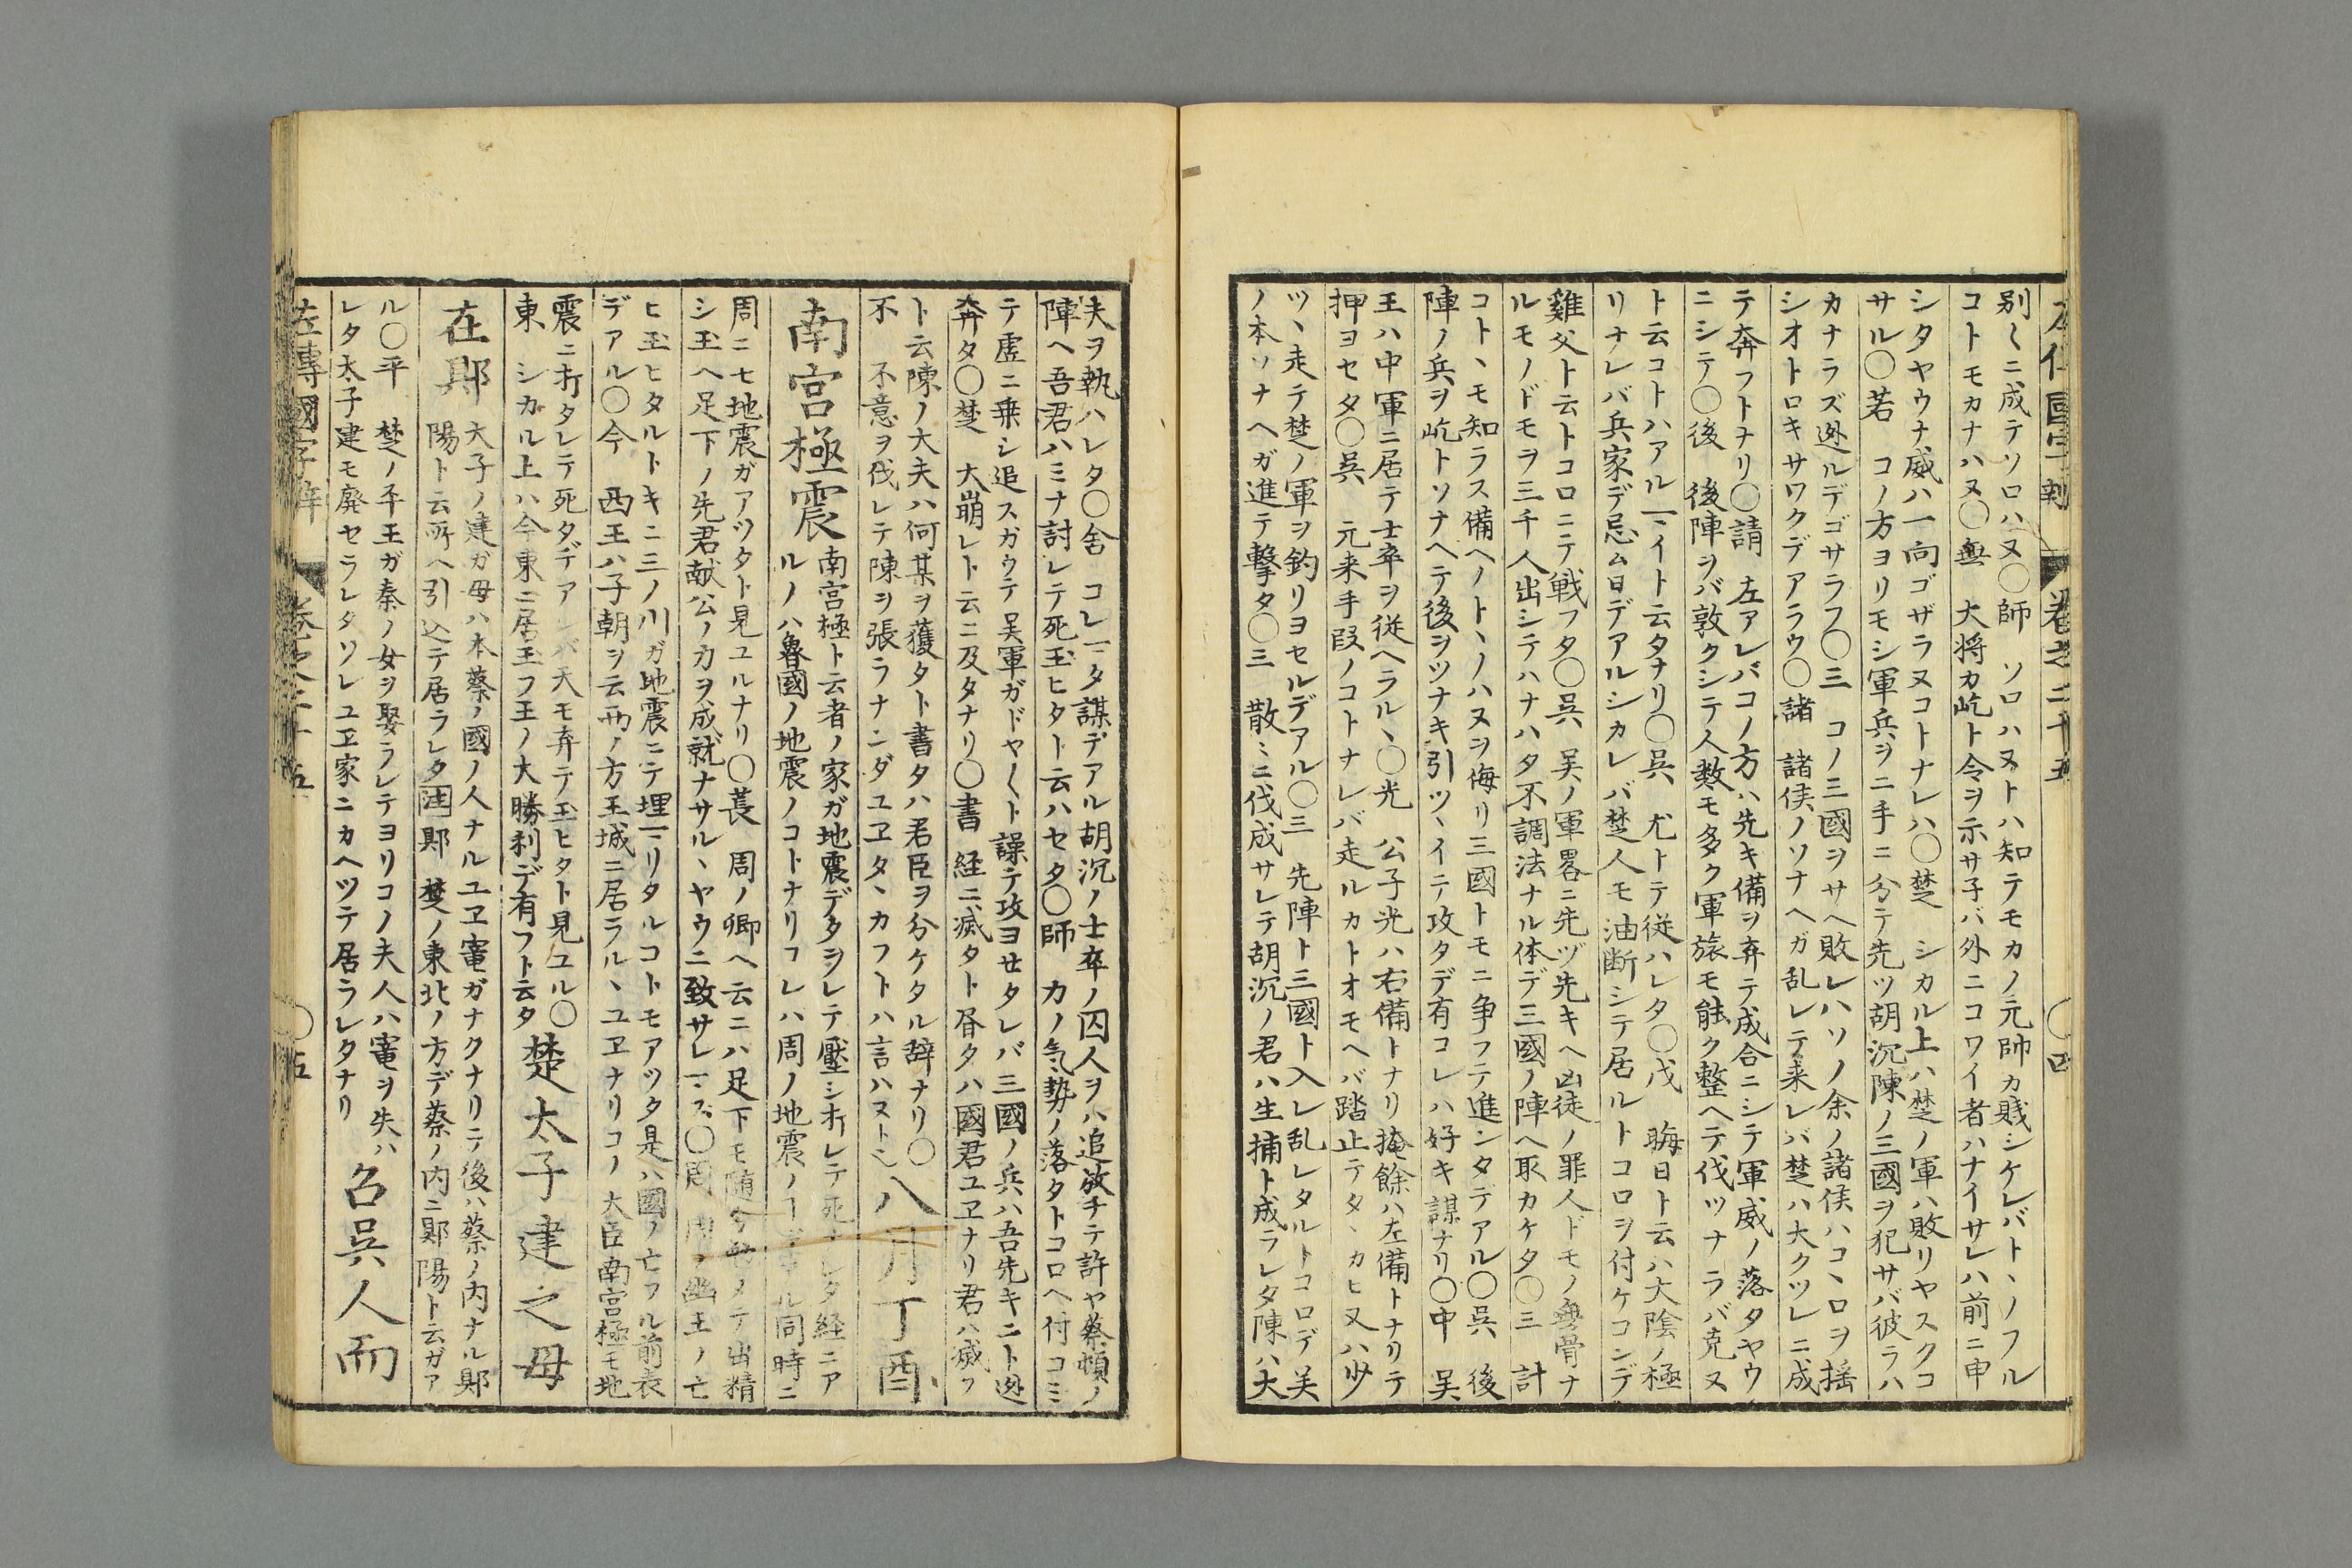 別〱ニ成テソロハヌ〇師　ソロハヌトハ知テモカノ元帥カ賎シケレバトヽノフル
コトモカナハヌ〇無　大将カ屹ト令ヲ示サ子バ外ニコワイ者ハナイサレハ前ニ申
シタヤウナ威ハ一向ゴザラヌコトナレハ〇楚　シカル上ハ楚ノ軍ハ敗リヤスクコ
サル〇若　コノ方ヨリモシ軍兵ヲニ手ニ分テ先ツ胡沉陳ノ三國ヲ犯サバ彼ラハ
カナラズ迯ルデゴサラフ〇三　コノ三國ヲサヘ敗レハソノ余ノ諸侯ハコヽロヲ揺
シオトロキサワクデアラウ〇諸　諸侯ノソナヘガ乱レテ来レバ楚ハ大クツレニ成
テ奔フトナリ〇請　左アレバコノ方ハ先キ備ヲ弃テ成合ニシテ軍威ノ落タヤウ
ニシテ〇後　後陣ヲバ敦クシテ人数モ多ク軍旅モ能ク整ヘテ伐ツナラバ克ヌ
ト云コトハアルマイト云タナリ〇呉　尤トテ従ハレタ〇戊　晦日ト云ハ大陰ノ極
リナレバ兵家デ忌ム日デアルシカレバ楚人モ油断シテ居ルトコロヲ付ケコンデ
雞父ト云トコロニテ戦フタ〇呉　吴ノ軍畧ニ先ヅ先キヘ凶徒ノ罪人ドモノ無骨ナ
ルモノドモヲ三千人出シテハナハタ不調法ナル体デ三國ノ陣ヘ取カケタ〇三　計
コトヽモ知ラス備ヘノトヽノハヌヲ侮リ三國トモニ争フテ進ンタデアル〇呉　後
陣ノ兵ヲ屹トソナヘテ後ヲツナキ引ツヽイテ攻タデ有コレハ好キ謀ナリ〇中　吴
王ハ中軍ニ居テ士卒ヲ従ヘラルヽ〇光　公子光ハ右備トナリ掩餘ハ左備トナリテ
押ヨセタ〇呉　元来手段ノコトナレバ走ルカトオモヘバ踏止テタヽカヒ又ハ少
ツヽ走テ楚ノ軍ヲ釣リヨセルデアル〇三　先陣ト三國ト入レ乱レタルトコロデ吴
ノ本ソナヘガ進テ撃タ〇三　散〻ニ伐成サレテ胡沉ノ君ハ生捕ト成ラレタ陳ハ大
夫ヲ執ハレタ〇舎　コレマタ謀デアル胡沉ノ士卒ノ囚人ヲハ追放チテ許ヤ蔡頓ノ
陣ヘ吾君ハミナ討レテ死玉ヒタト云ハセタ〇師　カノ気勢ノ落タトコロヘ付コミ
テ虚ニ乗シ追スガウテ吴軍ガドヤ〱ト譟テ攻ヨセタレバ三國ノ兵ハ吾先キニト迯
奔タ〇楚　大崩レト云ニ及タナリ〇書　経ニ滅タト昏タハ國君ユヱナリ君ハ滅フ
ト云陳ノ大夫ハ何某ヲ獲タト書タハ君臣ヲ分ケタル辞ナリ〇
不　不意ヲ伐レテ陳ヲ張ラナンダユヱタヽカフトハ言ハヌトシ八月丁酉
南宮極震南宮極ト云者ノ家ガ地震デタヲレテ壓シオレテ死ナレタ経ニア
ルノハ魯國ノ地震ノコトナリコレハ周ノ地震ノ同時ニ
周ニモ地震ガアツタト見ユルナリ〇萇　周ノ卿ヘ云ニハ足下モ随分セメテ出精
シ玉ヘ足下ノ先君献公ノ力ヲ成就ナサルヽヤウニ致サレマズ〇周　周ノ幽王ノ亡
ヒ玉ヒタルトキニ三ノ川ガ地震ニテ埋マリタルコトモアツタ是ハ國ノ亡フル前表
デアル〇今　西王ハ子朝ヲ云西ノ方王城ニ居ラルヽユヱナリコノ大臣南宮極モ地
震ニオタレテ死タデアレバ天モ弃テ玉ヒタト見ユル〇
東　シカル上ハ今東ニ居玉フ王ノ大勝利デ有フト云タ楚太子建之母
在郹　大子ノ建ガ母ハ本蔡ノ國ノ人ナルユヱ寵ガナクナリテ後ハ蔡ノ内ナル郹
陽ト云所ヘ引込テ居ラレタ注郹　楚ノ東北ノ方デ蔡ノ内ニ郹陽ト云ガア
ル〇平　楚ノ平王ガ秦ノ女ヲ娶ラレテヨリコノ夫人ハ寵ヲ失ハ
レタ太子建モ廃セラレタソレユヱ家ニカヘツテ居ラレタナリ召呉人而
左傳國字辯　卷之二十五　〇五